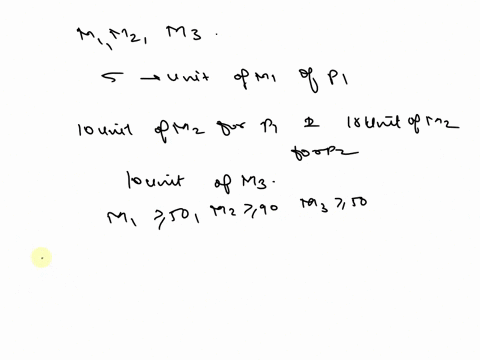 M1, M2, M3.
5 → unit of M1 of P1
10 unit of M2 for P1 & 10 unit of M2
for P2
10 unit of M3.
M1 ≥ 50, M2 ≥ 90 M3 ≥ 50